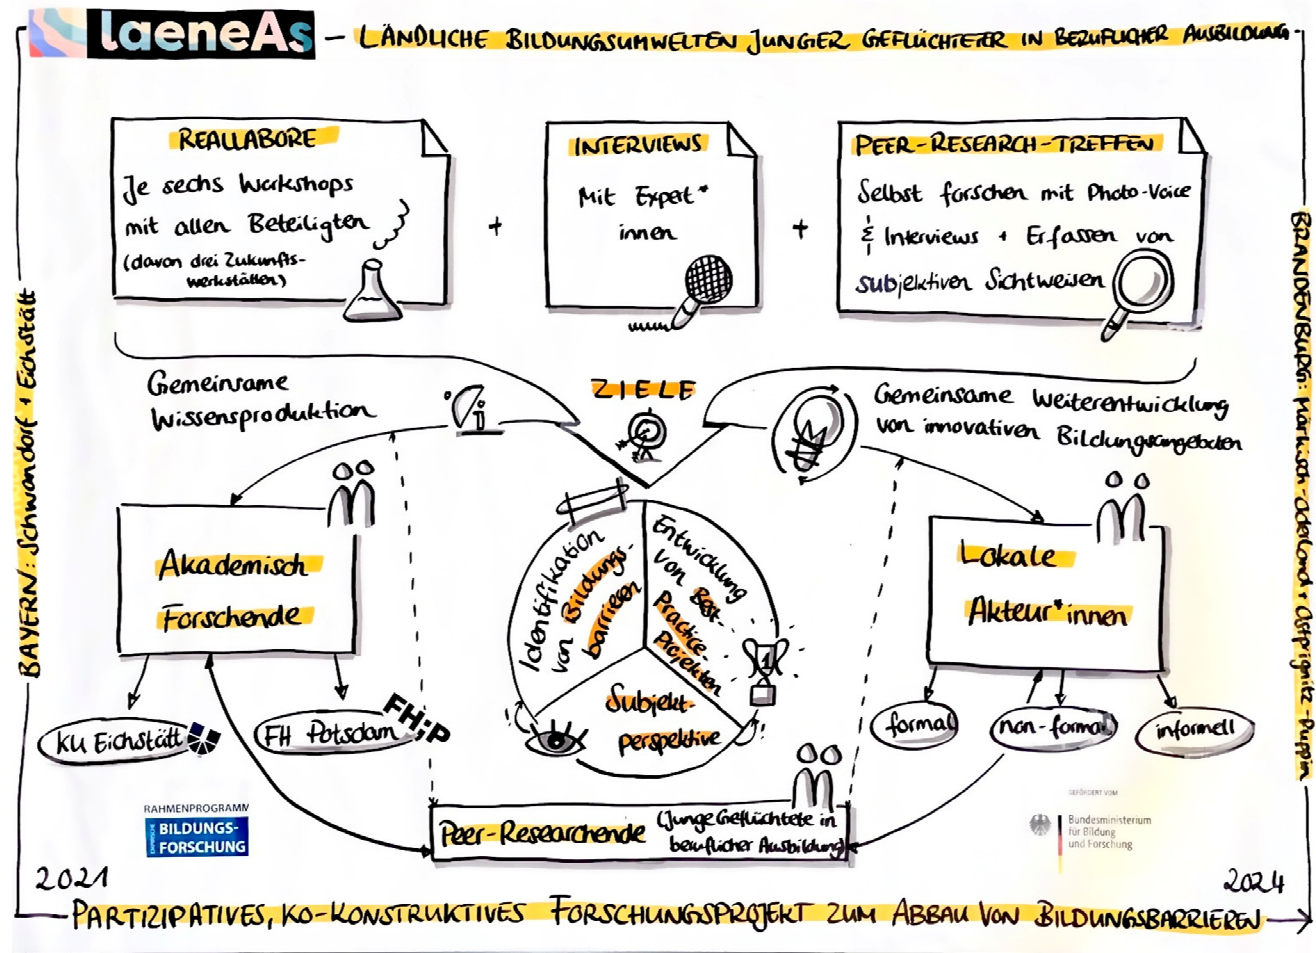 laeneAs – LÄNDLICHE BILDUNGSUMWELTEN JUNGER GEFLÜCHTETER IN BERUFLICHER AUSBILDUNG
REALLABORE
Je sechs Workshops
mit allen Beteiligten
(davon drei Zukunfts-
werkstätten)
+
INTERVIEWS
Mit Expert*
innen
+
PEER-RESEARCH-TREFFEN
Selbst forschen mit Photo-Voice
& Interviews + Erfassen von
subjektiven Sichtweisen
BAYERN: Schwandorf + Eichstätt
BRANDENBURG: Märkisch-Oderland + Ostprignitz-Ruppin
Gemeinsame
Wissensproduktion
ZIELE
Gemeinsame Weiterentwicklung
von innovativen Bildungsangeboten
Akademisch
Forschende
KU Eichstätt
FH Potsdam
FH;P
Identifikation
von Bildungs-
barrieren
Entwicklung
von Best-
Practice-
Projekten
1
Subjekt-
perspektive
Lokale
Akteur*innen
formal
non-formal
informell
Peer-Researchende (Junge Geflüchtete in
beruflicher Ausbildung)
RAHMENPROGRAMM
EMPIRISCHE
BILDUNGS-
FORSCHUNG
GEFÖRDERT VOM
Bundesministerium
für Bildung
und Forschung
2021
2024
PARTIZIPATIVES, KO-KONSTRUKTIVES FORSCHUNGSPROJEKT ZUM ABBAU VON BILDUNGSBARRIEREN